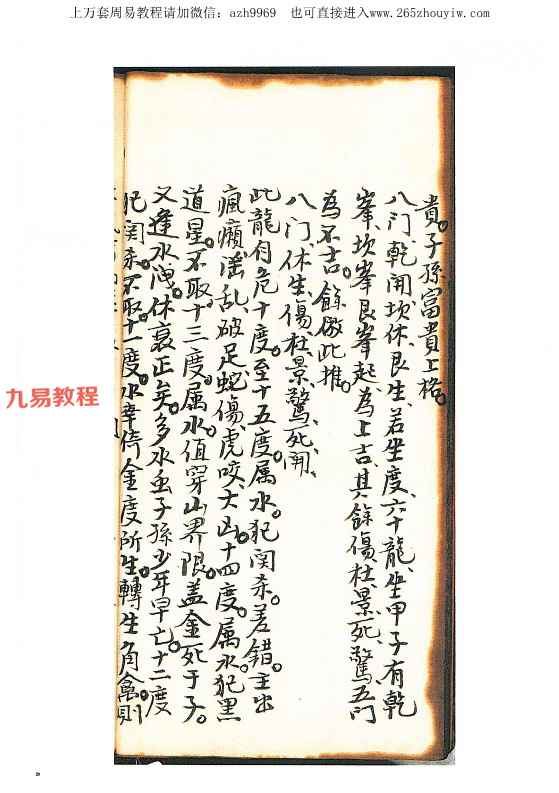 上万套周易教程请加微信：azh9969 也可直接进入www.265zhouyiw.com
貴。子孫富貴上格。
八门、乾開、坎休、艮生、若坐度、六十龍、坐甲子有乾
峯、坎峯、艮峯起為上吉、其餘傷杜景死驚五门
為不吉。餘倣此推。
八门、休生傷、杜景驚、死開、
此龍自危十度。至十五度。属水。犯関杀。差錯。主出
瘋癲、滛乱、破足蛇傷、虎咬、大凶。十四度。属水。犯黑
道星。不取。十三度。属水。值穿山界限。盖金死于子。
又逢水洩。休衰正矣。多水虫子孫少年早亡。十二度
犯関杀。不取。十一度。水幸倚金度所生。轉生角禽。則
九易教程